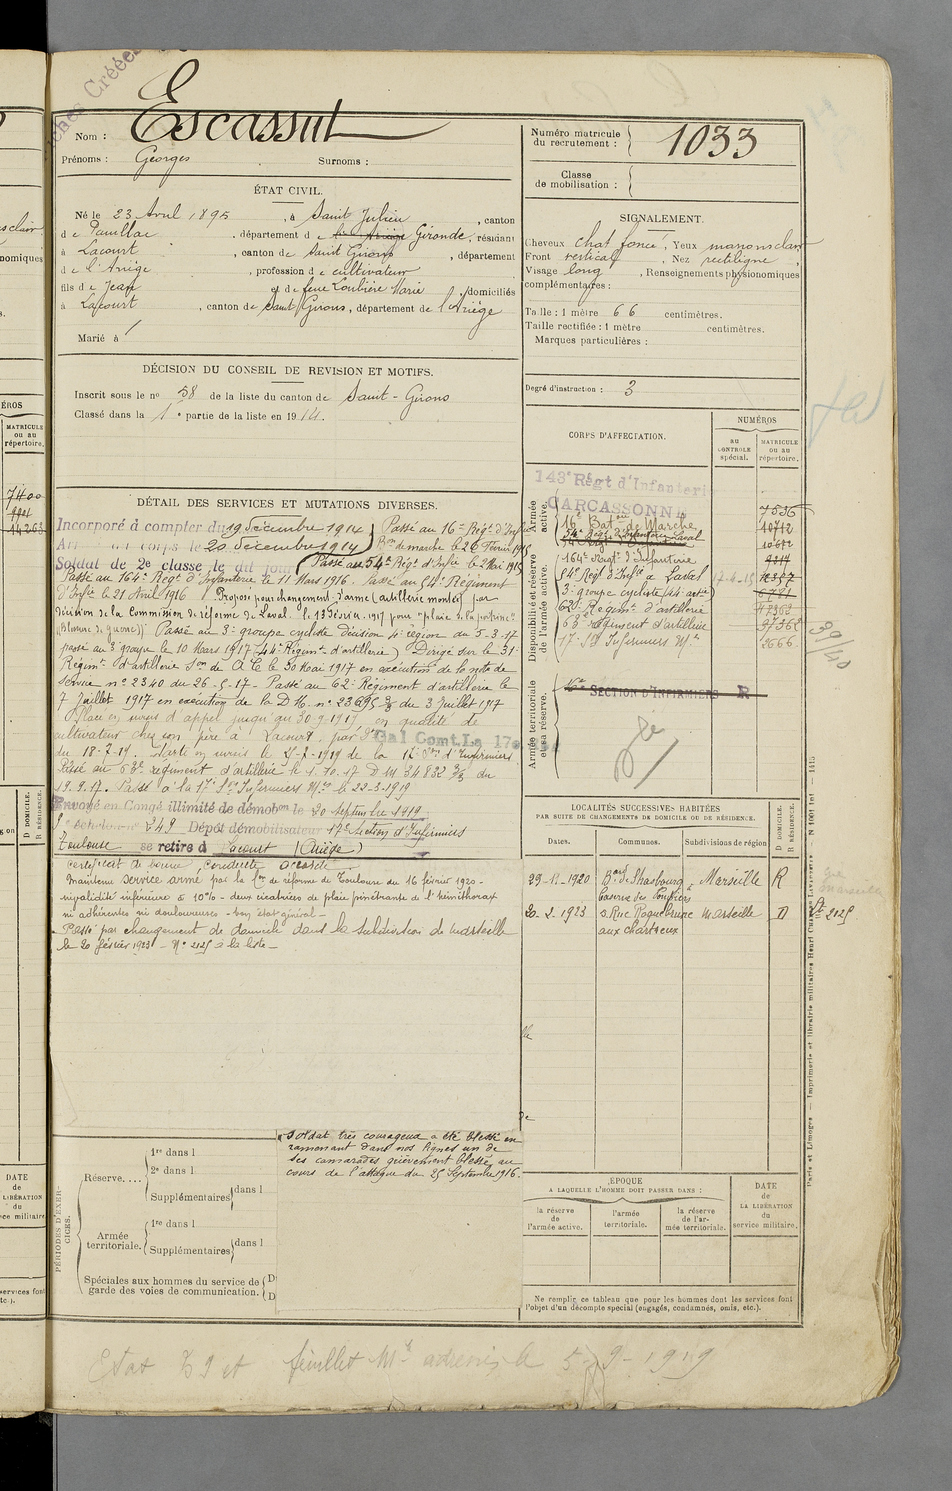 Nom : Escassut
Prénoms : Georges Surnoms :
ÉTAT CIVIL.
Né le 23 Avril 1895, à Saint Julien, canton
de Pauillac, département de Gironde, résidant
à Lacourt, canton de Saint Girons, département
de l'Ariège, profession de cultivateur
fils de Jean et de feue Loubière Marie, domiciliés
à Lacourt, canton de Saint Girons, département de l'Ariège
Marié à
DÉCISION DU CONSEIL DE REVISION ET MOTIFS.
Inscrit sous le no 58 de la liste du canton de Saint-Girons
Classé dans la 1e partie de la liste en 1914.
DÉTAIL DES SERVICES ET MUTATIONS DIVERSES.
Incorporé à compter du 19 décembre 1914 Passé au 16e Régt d'Infie
corps le 20 décembre 1914 Bon de marche le 26 Février 1915
Soldat de 2e classe le dit jour Passé au 54e Régt d'Infie le 2 Mai 1915
Passé au 164e Régt d'Infanterie le 11 Mars 1916. Passé au 54e Régiment
d'Infie le 21 Avril 1916 Proposé pour changement d'arme (artillerie montée) par
décision de la Commission de réforme de Laval. le 13 Février 1917 pour "plaie de la poitrine"
(Blessure de guerre) Passé au 3e groupe cycliste décision 4e région du 5-3-17
passé au 3e groupe le 10 Mars 1917 (44e Régimt d'artillerie) Dirigé sur le 31e
Régimt d'artillerie le 30 Mai 1917 en exécution de la note de
service no 2340 du 26-5-17. Passé au 62e Régiment d'artillerie le
7 Juillet 1917 en exécution de la D M. no 23695 3/3 du 3 Juillet 1917
Placé en sursis d'appel jusqu'au 30-9-1919 en qualité de
cultivateur chez son père à Lacourt, par Gal Comt La 17e
du 18-2-19. Parti en sursis le de la 17e Son d'Infirmiers
Passé au 63e régiment d'artillerie le 1.10.17 D M 34832 3/3 du
19.9.17. Passé à la 17e Son Infirmiers Mres le 22-3-1919
Envoyé en Congé illimité de démobon le 20 septembre 1919
échelon no 249 Dépôt démobilisateur 17e Section d'Infirmiers
Toulouse se retire à Lacourt (Ariège)
Certificat de bonne conduite accordé
Maintenu service armé par la Con de réforme de Toulouse du 16 février 1920 -
invalidité inférieure à 10% - deux cicatrices de plaie pénétrante de l'hémithorax
ni adhérentes ni douloureuses - bon état général -
Passé par changement de domicile dans la subdivision de Marseille
le 20 février 1923 - No 2125 à la liste -
PÉRIODES D'EXERCICES.
Réserve....
1re dans l
2e dans l
Supplémentaires dans l
Armée territoriale.
1re dans l
Supplémentaires dans l
Spéciales aux hommes du service de
garde des voies de communication.
Soldat très courageux a été blessé en
ramenant dans nos lignes un de
ses camarades grièvement blessé, au
cours de l'attaque du 25 Septembre 1916.
Numéro matricule
du recrutement : 1033
Classe
de mobilisation :
SIGNALEMENT.
Cheveux chat foncé, Yeux marron clair
Front vertical, Nez rectiligne
Visage long, Renseignements physionomiques
complémentaires :
Taille : 1 mètre 66 centimètres.
Taille rectifiée : 1 mètre centimètres.
Marques particulières :
Degré d'instruction : 3
CORPS D'AFFECTATION.
NUMÉROS
AU CONTROLE spécial.
MATRICULE ou au répertoire.
Armée active.
143e Régt d'Infanterie
CARCASSONNE 7536
16e Bat. de Marche 10712
54e Régt d'Infanterie Laval
Disponibilité et réserve de l'armée active.
164e Régt d'Infanterie
54e Régt d'Infie à Laval 17-4-15
3e groupe cycliste (44e artie) 6781
62e Régimt d'artillerie
63e Régiment d'artillerie
17e Son Infirmiers Mre 2666
Armée territoriale et sa réserve.
SECTION D'INFIRMIERS R
LOCALITÉS SUCCESSIVES HABITÉES
PAR SUITE DE CHANGEMENTS DE DOMICILE OU DE RÉSIDENCE.
Dates. Communes. Subdivisions de région
D DOMICILE.
R RÉSIDENCE.
29-11-1920 Bard de Strasbourg Marseille R
Caserne des Pompiers
20-2-1923 Rue Roquebrune Marseille D
aux chartreux
2125
ÉPOQUE
A LAQUELLE L'HOMME DOIT PASSER DANS :
la réserve de l'armée active.
l'armée territoriale.
la réserve de l'armée territoriale.
DATE de LA LIBÉRATION du service militaire.
Ne remplir ce tableau que pour les hommes dont les services font
l'objet d'un décompte spécial (engagés, condamnés, omis, etc.).
39/40
Etat et feuillet Mle adressés le 5-9-1919